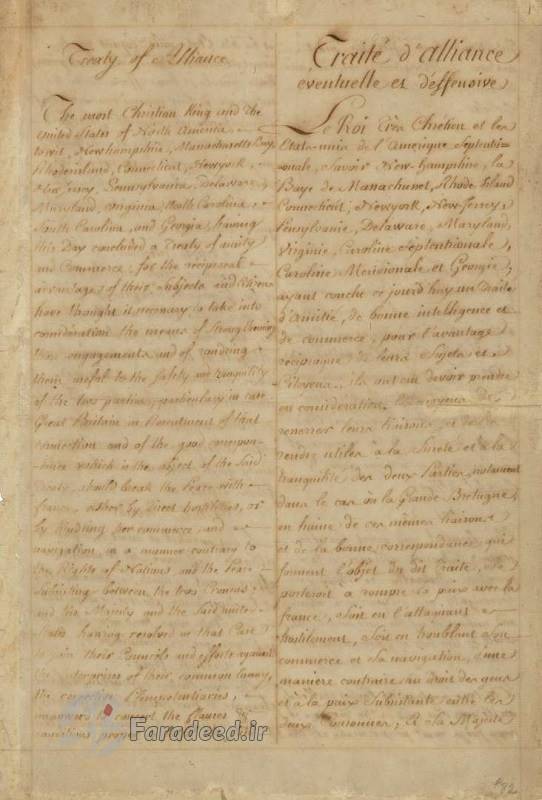 Treaty of Alliance
The most Christian King and the
United States of North America
to wit, Newhampshire, Massachusetts Bay,
Rhodeisland, Connecticut, Newyork,
New Jersey, Pennsylvania, Delaware,
Maryland, Virginia, North Carolina,
South Carolina, and Georgia, having
this Day concluded a Treaty of amity
and Commerce, for the reciprocal
advantage of their Subjects and Citizens
have thought it necessary to take into
consideration the means of strengthening
those engagements and of rendering
them useful to the safety and tranquility
of the two parties, particularly in case
Great Britain in Resentment of that
connection and of the good correspon-
-dence which is the object of the Said
Treaty, should break the Peace with
france, either by direct hostilities, or
by hindring her commerce and
navigation, in a manner contrary to
the Rights of Nations, and the Peace
subsisting between the two Crowns;
and his Majesty and the Said united
States having resolved in that Case
to join their Councils and efforts against
the Enterprises of their common Ennemy,
the respective Plenipotentiaries,
impower'd to concert the Clauses
conditions proper
Traité d'alliance
eventuelle et déffensive
Le Roi très Chrétien et les
Etats-unis de l'Amerique Septentri=
=onale, Savoir New-hampshire, la
Baye de Massachuset, Rhode Island
Connecticut, Newyork, New-Jersey,
Pensylvanie, Delaware, Maryland,
Virginie, Caroline Septentrionale,
Caroline Meridionale et Georgie,
ayant conclu ce jourd'huy un Traité
d'Amitié, de bonne intelligence et
de commerce, pour l'avantage
réciproque de leurs Sujets et
Citoyens, ils ont cru devoir prendre
en considération les moyens de
resserrer leurs liaisons, et de les
rendre utiles à la Sureté et à la
tranquilité des deux Parties, notament
dans le cas où la Grande Bretagne,
en haine de ces mêmes liaisons
et de la bonne correspondance qui
forment l'objet du dit Traité, se
porteroit à rompre la paix avec la
france, Soit en l'attaquant
hostilement, Soit en troublant Son
commerce et Sa navigation, d'une
manière contraire au droit des gens
et à la paix Subsistante entre les
deux Couronnes; Et Sa Majesté
Faradeed.ir